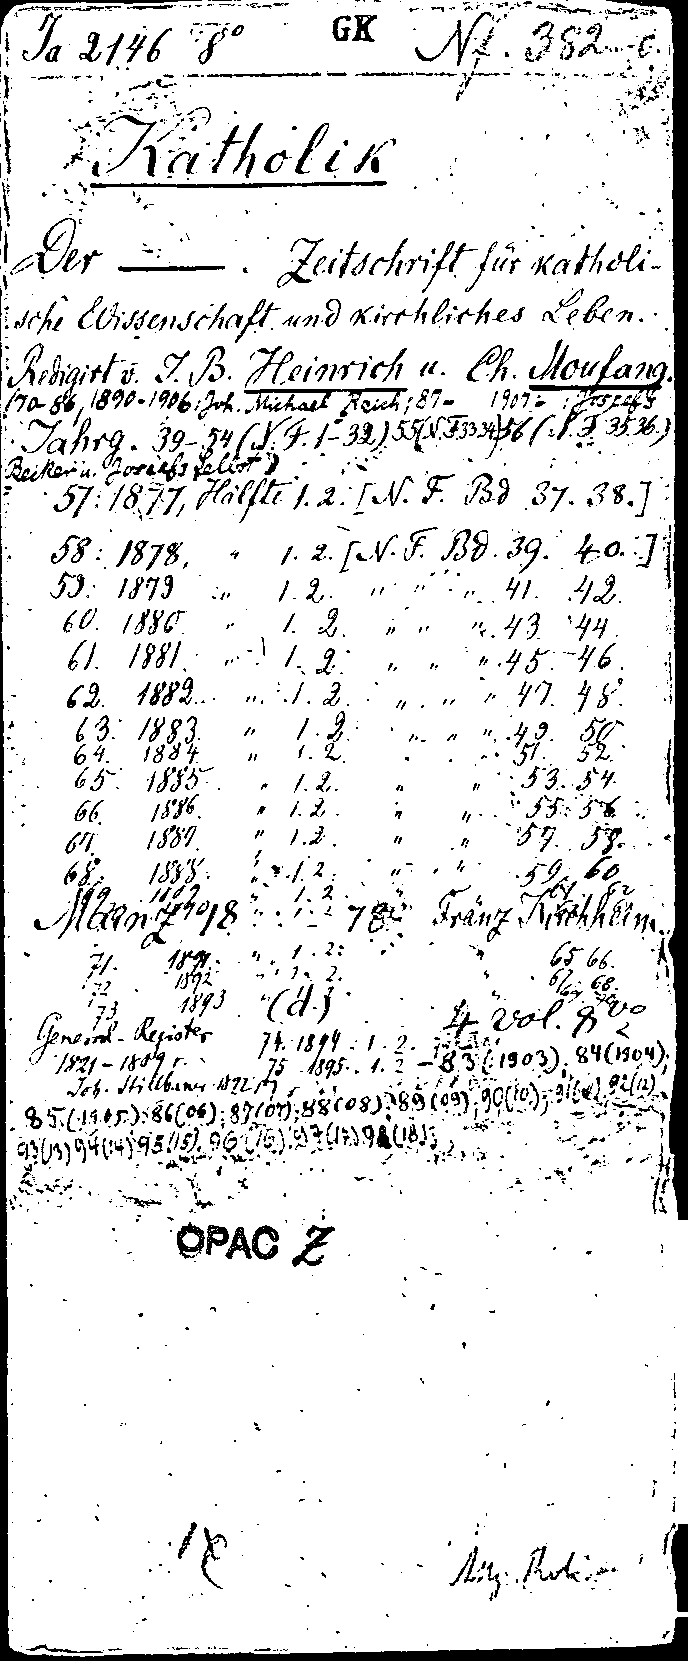 Ja 2146 8° GK Nf. 382 c
Katholik
Der ——— . Zeitschrift für katholi-
sche Wissenschaft und kirchliches Leben.
Redigirt v. J. B. Heinrich u. Ch. Moufang.
70-86, 1890-1906: Joh. Michael Raich; 87- 1907- : Joseph
Jahrg. 39-54 (N. F. 1-32) 55 (N. F. 33 34) 56 (N. F. 35 36.)
Becker u. Joseph Selbst)
57: 1877, Hälfte 1. 2. [N. F. Bd 37. 38.]
58: 1878, " 1. 2. [N. F. Bd. 39. 40.]
59: 1879 " 1. 2. " " " 41. 42.
60. 1880 " 1. 2. " " " 43 44.
61. 1881. " 1. 2. " " " 45. 46.
62. 1882. " 1. 2. " " " 47. 48.
63. 1883. " 1. 2. " " " 49. 50
64. 1884 " 1. 2. 51. 52
65. 1885. " 1. 2. " " 53. 54.
66. 1886. " 1. 2. " " 55. 56
67. 1887. " 1. 2. " " 57. 58.
68. 1888. " 1. 2. " " 59. 60
69 1889 " 1. 2 " 61 62
Mainz 70 18 " 1. 2 78 Franz Kirchheim.
71. 1891. " 1. 2. 65 66.
72 1892 " 1. 2. " 67 68.
73 1893 " (d.) 4 vol. 8vo
General-Register 74. 1894 1. 2.
1821-1889 v. 75 1895. 1. 2 - 83 (1903), 84 (1904),
Joh. 1822
85. (1905); 86 (06); 87 (07); 88 (08); 89 (09); 90 (10); 91 (11), 92 (12),
93 (13) 94 (14) 95 (15). 96 (16). 97 (17) 98 (18);
OPAC Z